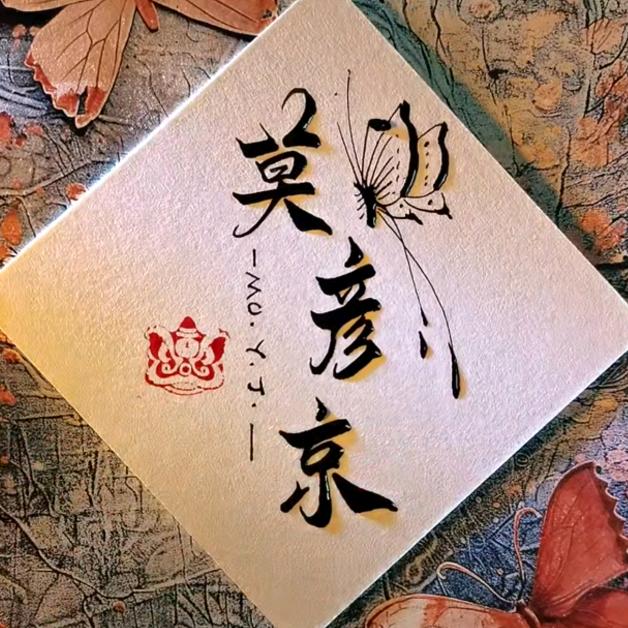 莫彦京
—Mo.Y.J.—